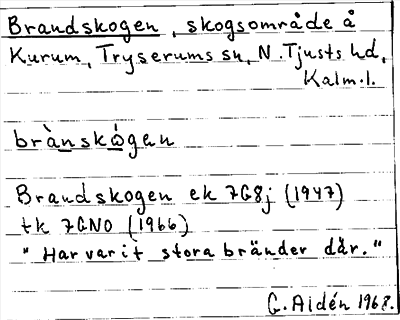 Brandskogen, skogsområde å
Kurum, Tryserums sn, N. Tjusts hd,
Kalm. l.
brànskógan
Brandskogen ek 7G8j (1947)
tk 7GNO (1966)
"Har varit stora bränder där."
G. Aldén 1968.